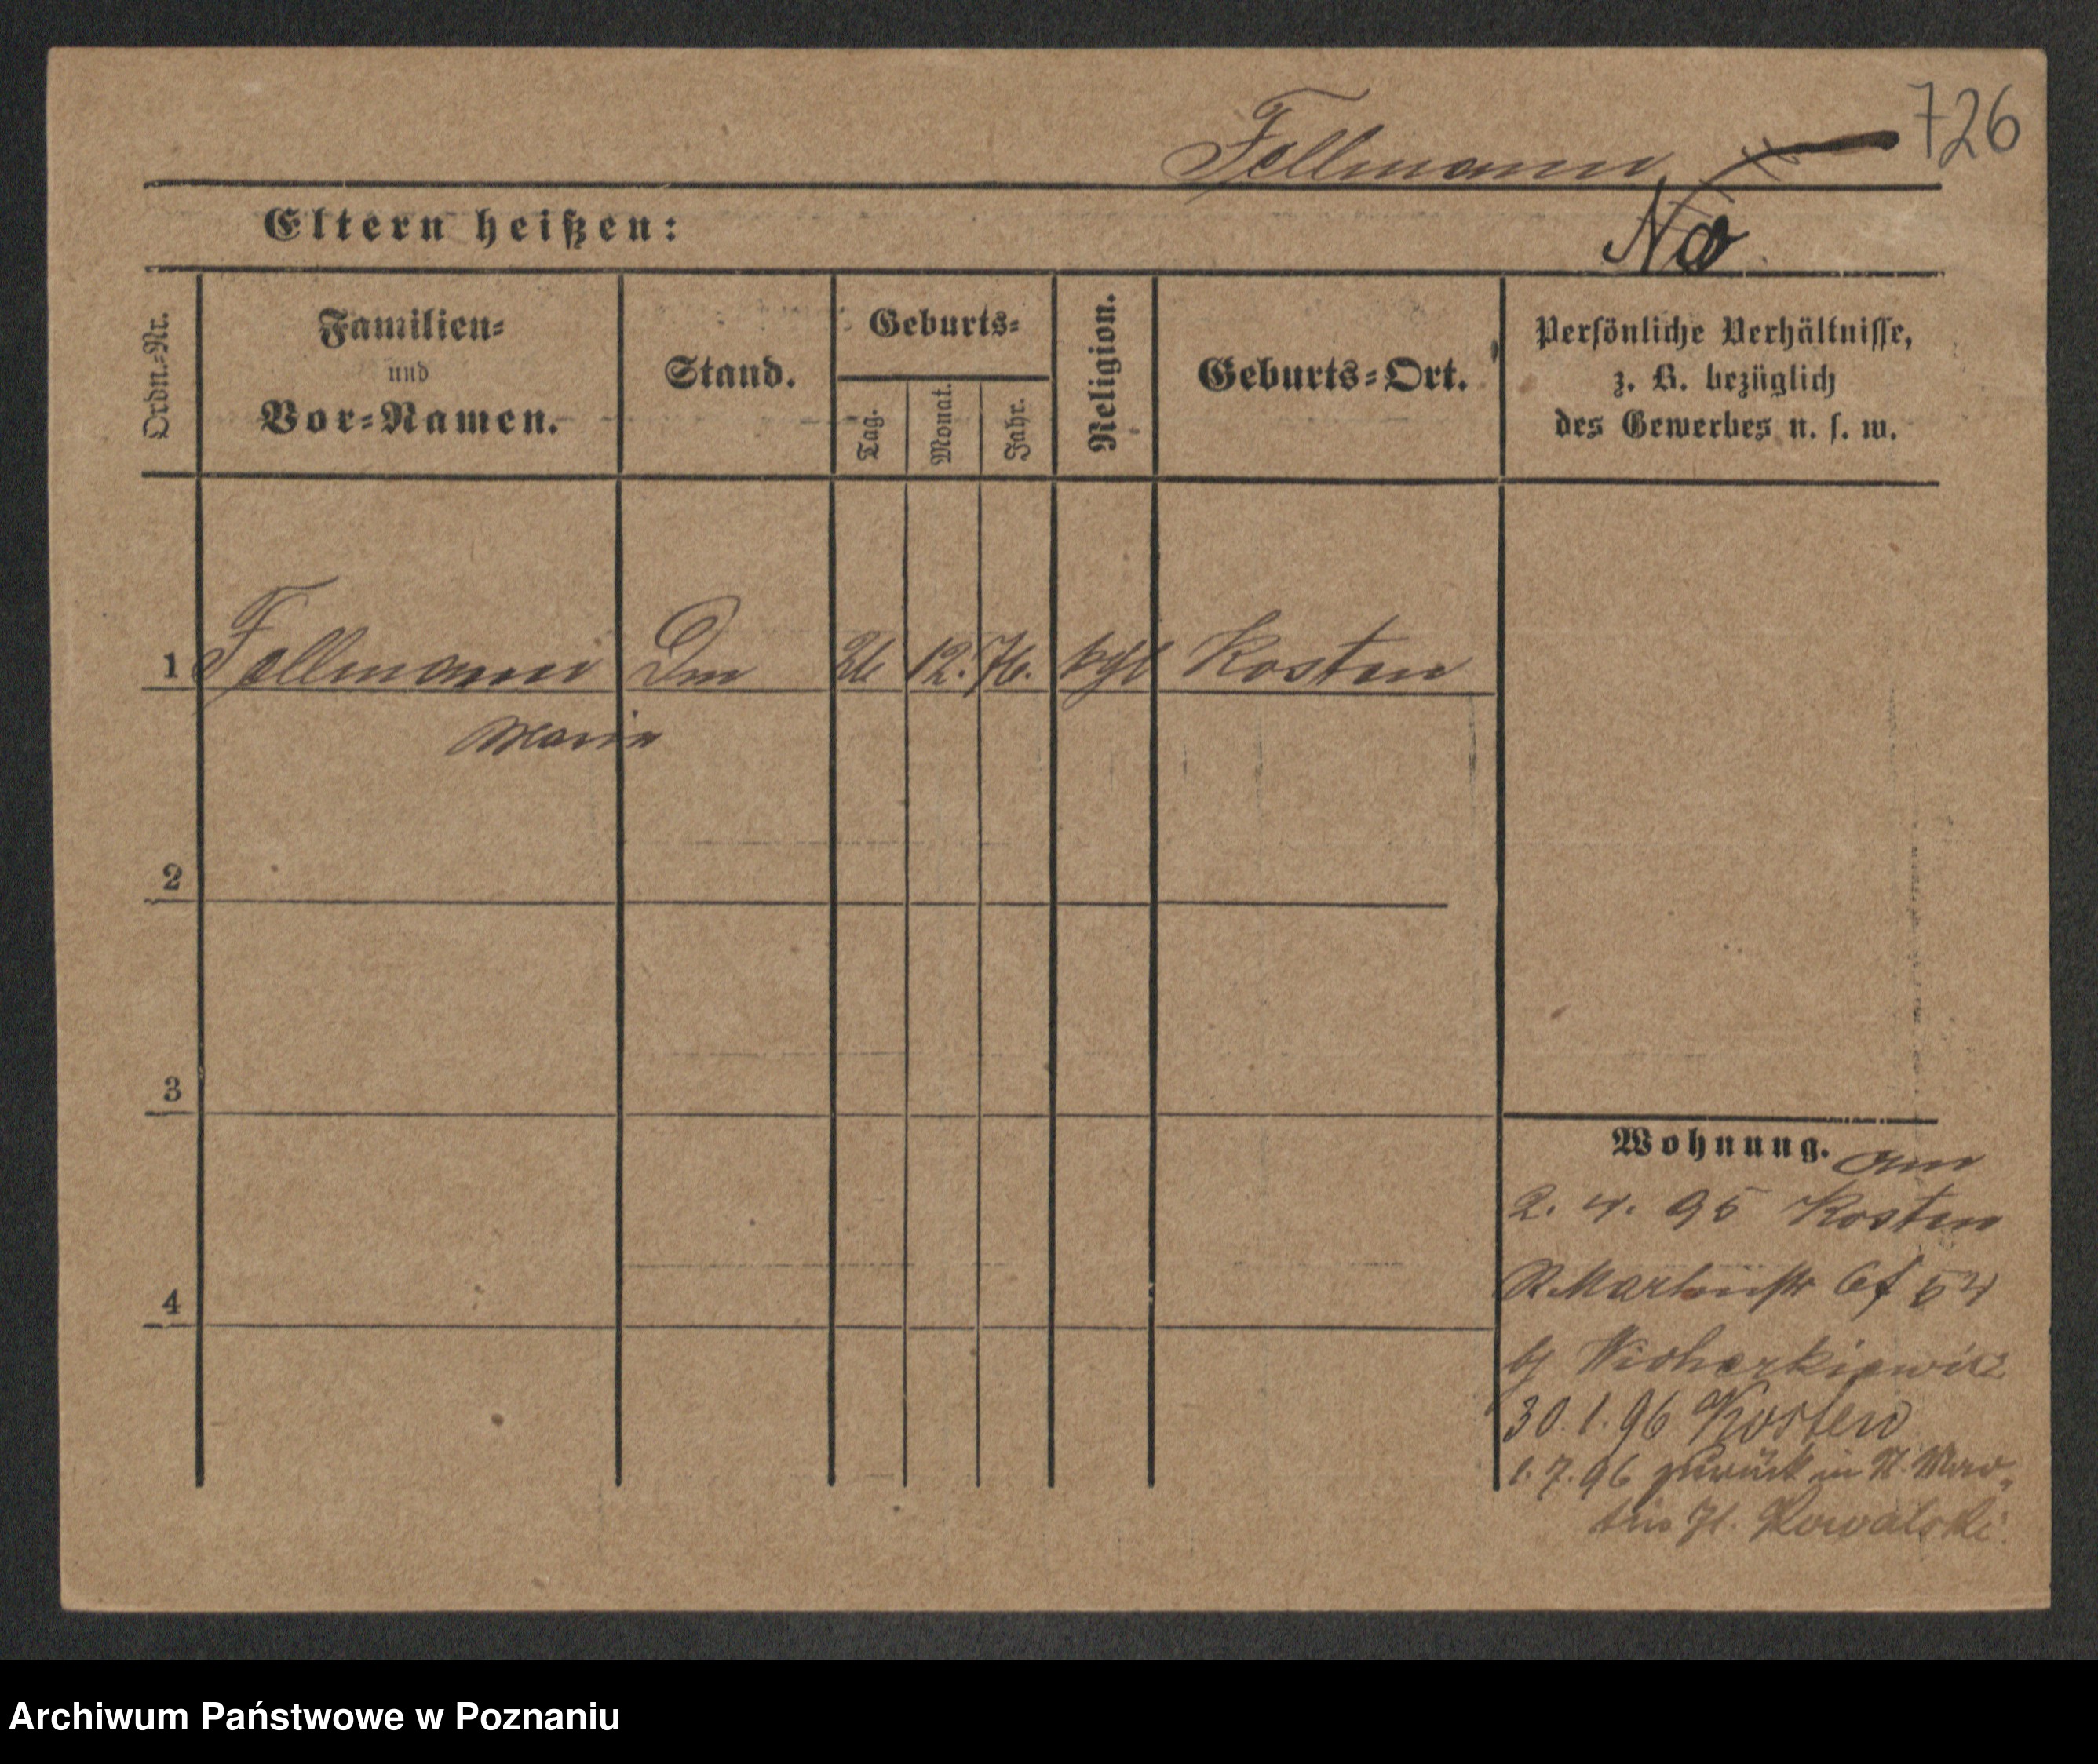 726
Follmann
Eltern heißen:
Ordn.=Nr.
Familien=
und
Vor=Namen.
Stand.
Geburts=
Tag.
Monat.
Jahr.
Religion.
Geburts=Ort.
Persönliche Verhältnisse,
z. B. bezüglich
des Gewerbes u. s. w.
1 Follmann 26 12. 76. Kosten
Maria
2
3
4
Wohnung.
2. 4. 95 Kosten
54
30. 1. 96 Kosten
1. 7. 96 zurück in
Kowalski
Archiwum Państwowe w Poznaniu